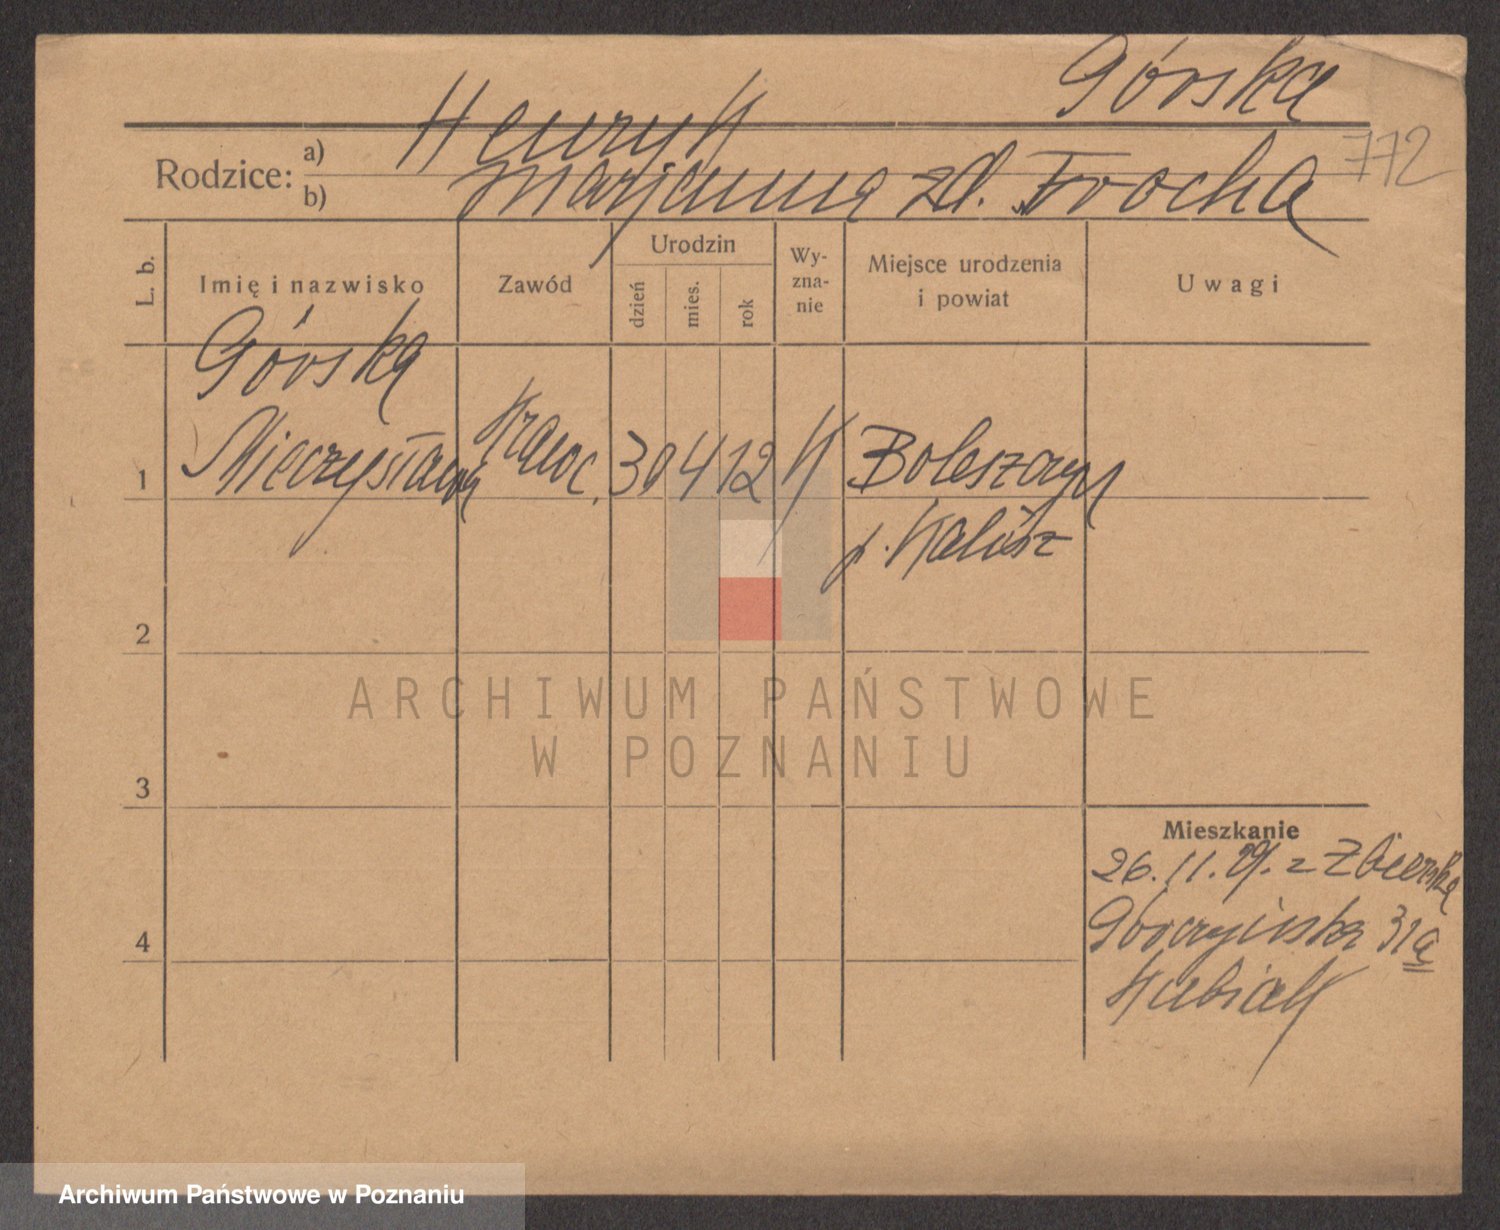 Górska
772
Rodzice: a) Henryk
b) Marjanna zd. Trocha
L. b.
Imię i nazwisko
Zawód
Urodzin
dzień
mies.
rok
Wy-
zna-
nie
Miejsce urodzenia
i powiat
Uwagi
Górska
1 Mieczysława Krawc. 30 4 12 K Boleszczyn
p. Kalisz
2
ARCHIWUM PAŃSTWOWE
W POZNANIU
3
Mieszkanie
26.11.29. z Zbierska
4 31a
Kubiak
Archiwum Państwowe w Poznaniu